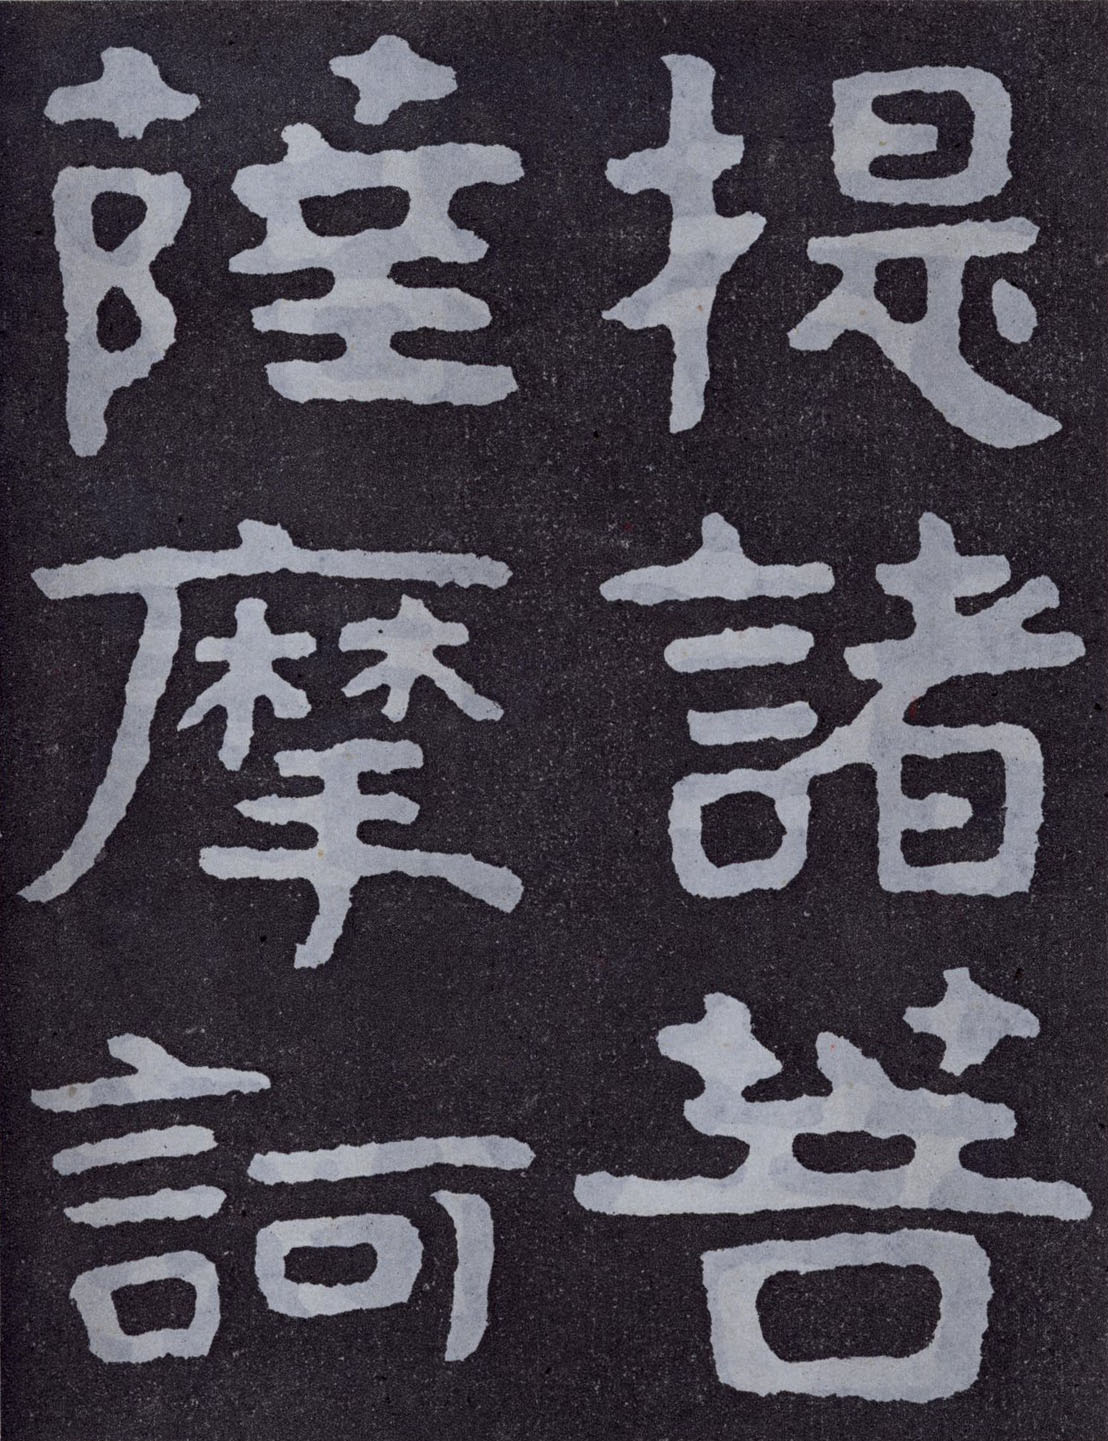 提諸菩
薩摩訶